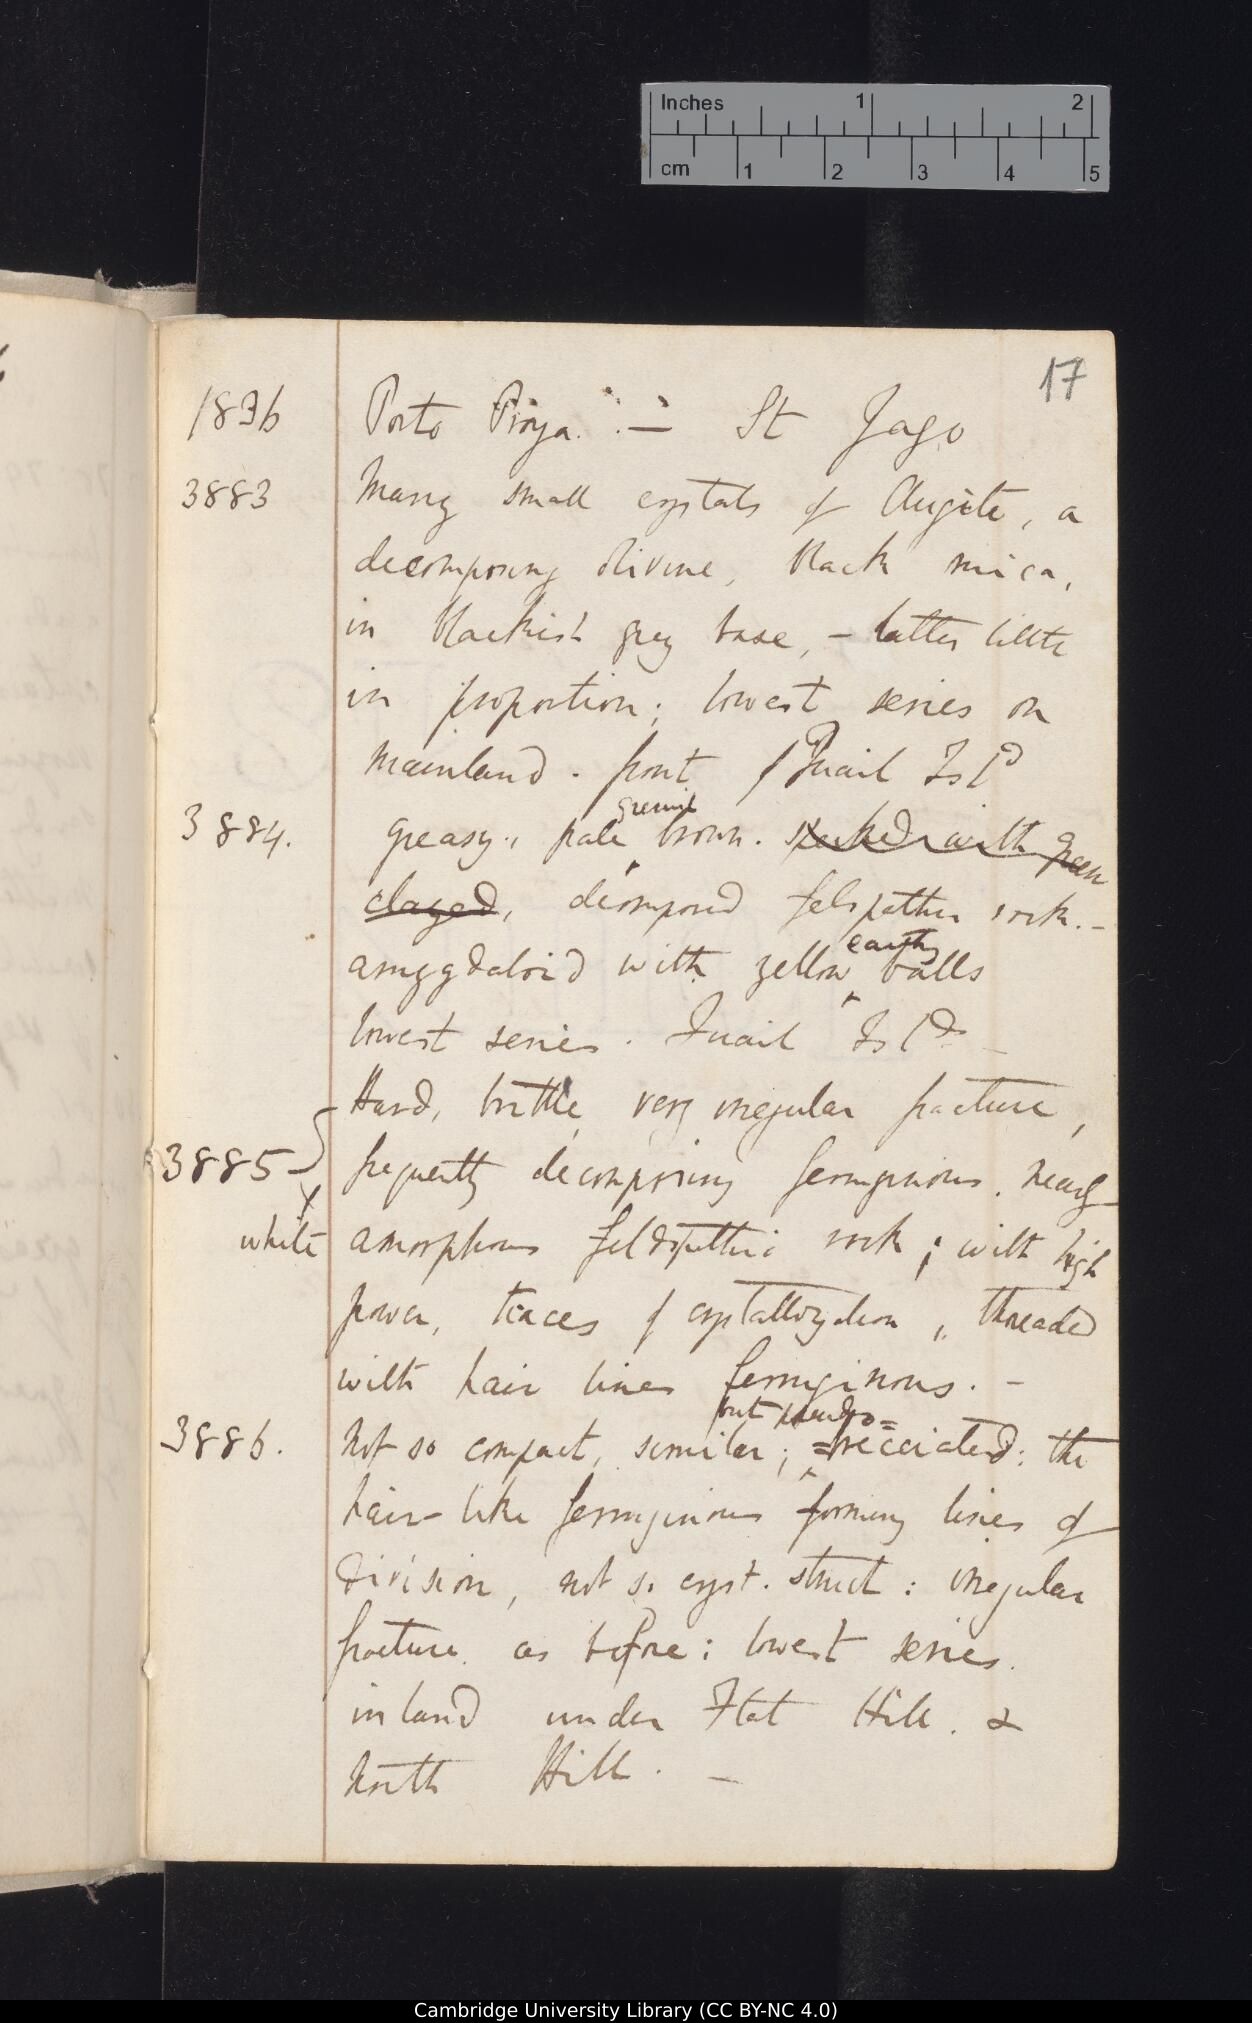 Inches 1 2
cm 1 2 3 4 5
17
1836 Porto Praya. :— St Jago
3883 Many small crystals of Augite, a
decomposing olivine, black mica,
in blackish grey base, – latter little
in proportion; lowest series on
mainland. front of Quail Isld
greenish
3884. greasy, pale brown. specked with green
clayed, decomposed felspathic rock.–
earthy
amygdaloid with yellow balls
lowest series. Quail Isld –
Hard, brittle, very irregular fracture,
3885 frequently decomposing ferruginous, nearly
white amorphous feldspathic rock; with high
power, traces of crystallization, threaded
with hair lines ferruginous. –
but pseudo=
3886. Not so compact, similar; =brecciated: the
hair-like ferruginous forming lines of
division, not so cryst. struct: irregular
fracture as before: lowest series.
inland under Flat Hill. &
North Hill. –
Cambridge University Library (CC BY-NC 4.0)